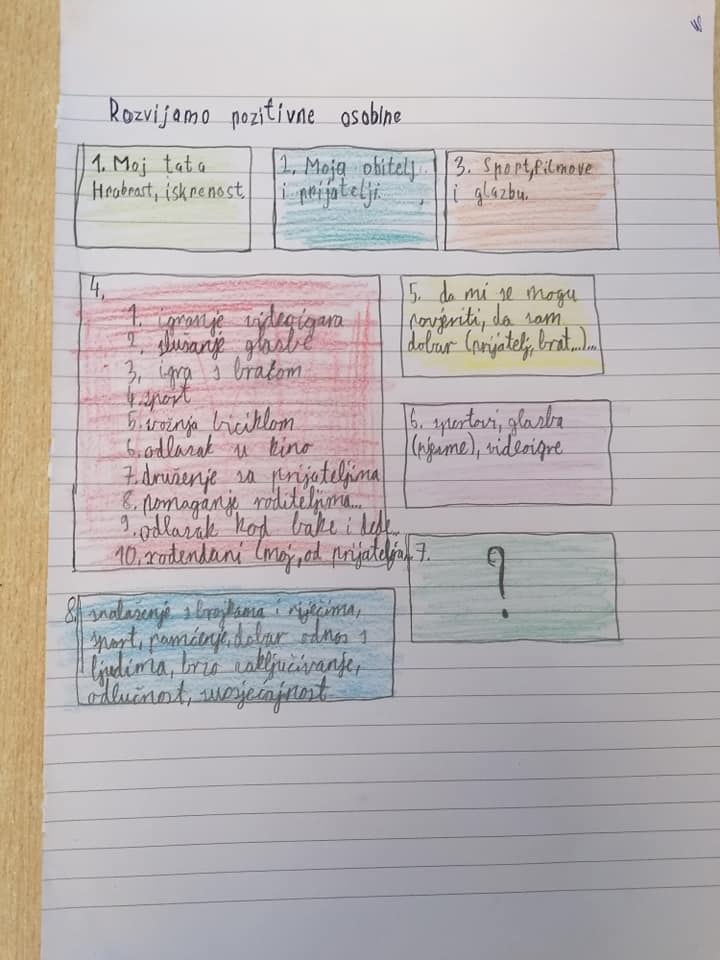 Rozvijamo pozitivne osobine
1. Moj tata
Hrabrost, iskrenost.
2. Moja obitelj
i prijatelji.
3. Sport, filmove
i glazbu.
4.
1. igranje videoigara
2. slušanje glasbe
3. igra s bratom
4. sport
5. vožnja biciklom
6. odlazak u kino
7. druženje sa prijateljima
8. pomaganje roditeljima...
9. odlazak kod bake i dede...
10. rođendani (moj, od prijatelja)
5. da mi se mogu
povjeriti, da sam
dobar (prijatelj, brat...)...
6. sportovi, glazba
(pjesme), videoigre
7.
?
8. snalaženje s brojkama i riječima,
sport, pamćenje, dobar odnos s
ljudima, brzo zaključivanje,
odlučnost, suosjećajnost